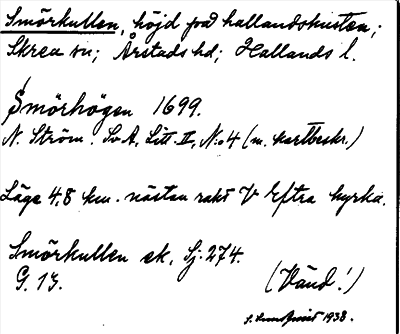 Smörkullen, höjd på hallandskusten;
Skrea sn; Årstads hd; Hallands l.
Smörhögen 1699.
N. Ström. Sv. A, Litt. II, N:o 4 (m. kartbeskr.)
Läge 4,8 km. nästan rakt V Eftra kyrka.
Smörkullen ek. Sj. 274.
G. 13.
(Vänd!)
1938.